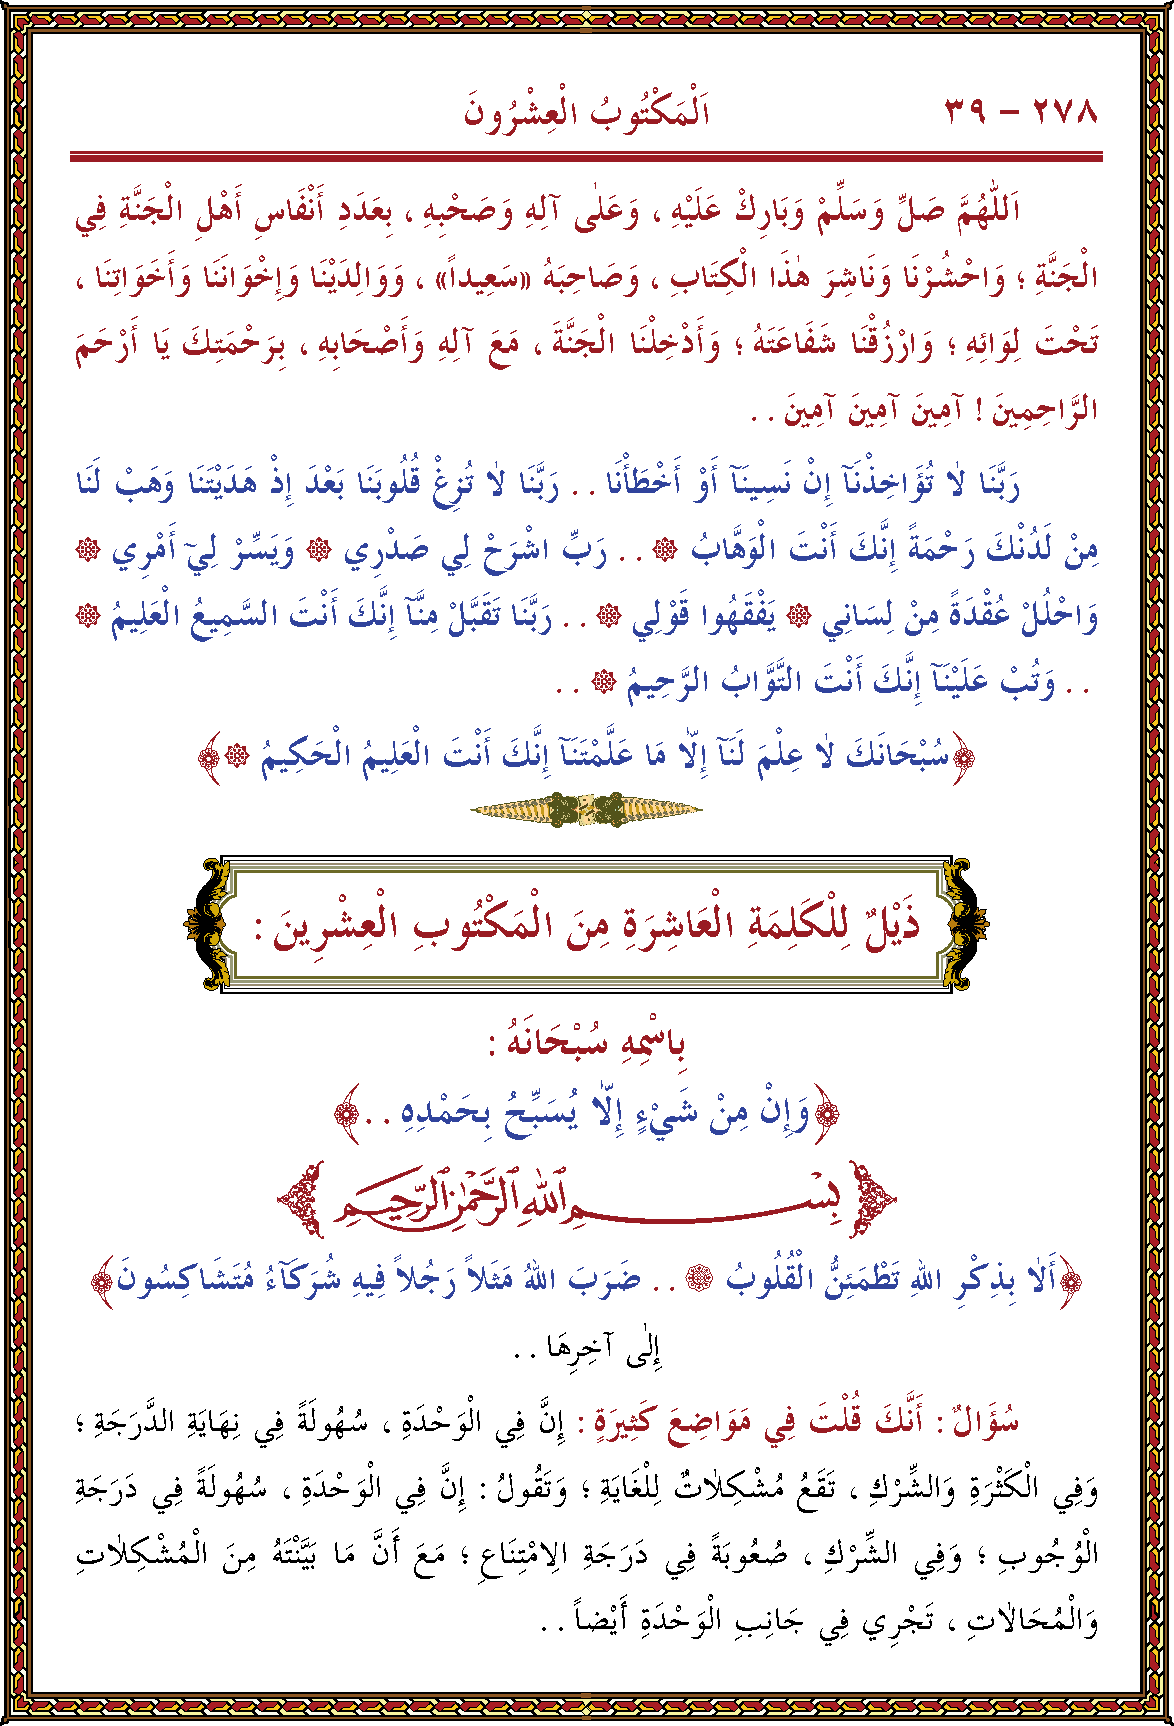 ٢٧٨ – ٣٩ اَلْمَكْتُوبُ الْعِشْرُونَ
اَللّٰهُمَّ صَلِّ وَسَلِّمْ وَبَارِكْ عَلَيْهِ ، وَعَلٰى آلِهِ وَصَحْبِهِ ، بِعَدَدِ أَنْفَاسِ أَهْلِ الْجَنَّةِ فِي
الْجَنَّةِ ؛ وَاحْشُرْنَا وَنَاشِرَ هٰذَا الْكِتَابِ ، وَصَاحِبَهُ «سَعِيداً» ، وَوَالِدَيْنَا وَإِخْوَانَنَا وَأَخَوَاتِنَا ،
تَحْتَ لِوَائِهِ ؛ وَارْزُقْنَا شَفَاعَتَهُ ؛ وَأَدْخِلْنَا الْجَنَّةَ ، مَعَ آلِهِ وَأَصْحَابِهِ ، بِرَحْمَتِكَ يَا أَرْحَمَ
الرَّاحِمِينَ ! آمِينَ آمِينَ آمِينَ . .
رَبَّنَا لاٰ تُؤَاخِذْنَآ إِنْ نَسِينَآ أَوْ أَخْطَأْنَا . . رَبَّنَا لاٰ تُزِغْ قُلُوبَنَا بَعْدَ إِذْ هَدَيْتَنَا وَهَبْ لَنَا
مِنْ لَدُنْكَ رَحْمَةً إِنَّكَ أَنْتَ الْوَهَّابُ ۞ . . رَبِّ اشْرَحْ لِي صَدْرِي ۞ وَيَسِّرْ لِيٓ أَمْرِي ۞
وَاحْلُلْ عُقْدَةً مِنْ لِسَانِي ۞ يَفْقَهُوا قَوْلِي ۞ . . رَبَّنَا تَقَبَّلْ مِنَّآ إِنَّكَ أَنْتَ السَّمِيعُ الْعَلِيمُ ۞
. . وَتُبْ عَلَيْنَآ إِنَّكَ أَنْتَ التَّوَّابُ الرَّحِيمُ ۞ . .
﴿سُبْحَانَكَ لاٰ عِلْمَ لَنَآ إِلاّٰ مَا عَلَّمْتَنَآ إِنَّكَ أَنْتَ الْعَلِيمُ الْحَكِيمُ ۞﴾
ذَيْلٌ لِلْكَلِمَةِ الْعَاشِرَةِ مِنَ الْمَكْتُوبِ الْعِشْرِينَ :
بِاسْمِهِ سُبْحَانَهُ :
﴿وَإِنْ مِنْ شَيْءٍ إِلاّٰ يُسَبِّحُ بِحَمْدِهِ . .﴾
بِسْمِ اللهِ الرَّحْمٰنِ الرَّحِيمِ
﴿أَلاٰ بِذِكْرِ اللهِ تَطْمَئِنُّ الْقُلُوبُ ۞ . . ضَرَبَ اللهُ مَثَلاً رَجُلاً فِيهِ شُرَكَآءُ مُتَشَاكِسُونَ﴾
إِلٰى آخِرِهَا . .
سُؤَالٌ : أَنَّكَ قُلْتَ فِي مَوَاضِعَ كَثِيرَةٍ : إِنَّ فِي الْوَحْدَةِ ، سُهُولَةً فِي نِهَايَةِ الدَّرَجَةِ ؛
وَفِي الْكَثْرَةِ وَالشِّرْكِ ، تَقَعُ مُشْكِلاٰتٌ لِلْغَايَةِ ؛ وَتَقُولُ : إِنَّ فِي الْوَحْدَةِ ، سُهُولَةً فِي دَرَجَةِ
الْوُجُوبِ ؛ وَفِي الشِّرْكِ ، صُعُوبَةً فِي دَرَجَةِ الِامْتِنَاعِ ؛ مَعَ أَنَّ مَا بَيَّنْتَهُ مِنَ الْمُشْكِلاٰتِ
وَالْمُحَالاٰتِ ، تَجْرِي فِي جَانِبِ الْوَحْدَةِ أَيْضاً . .